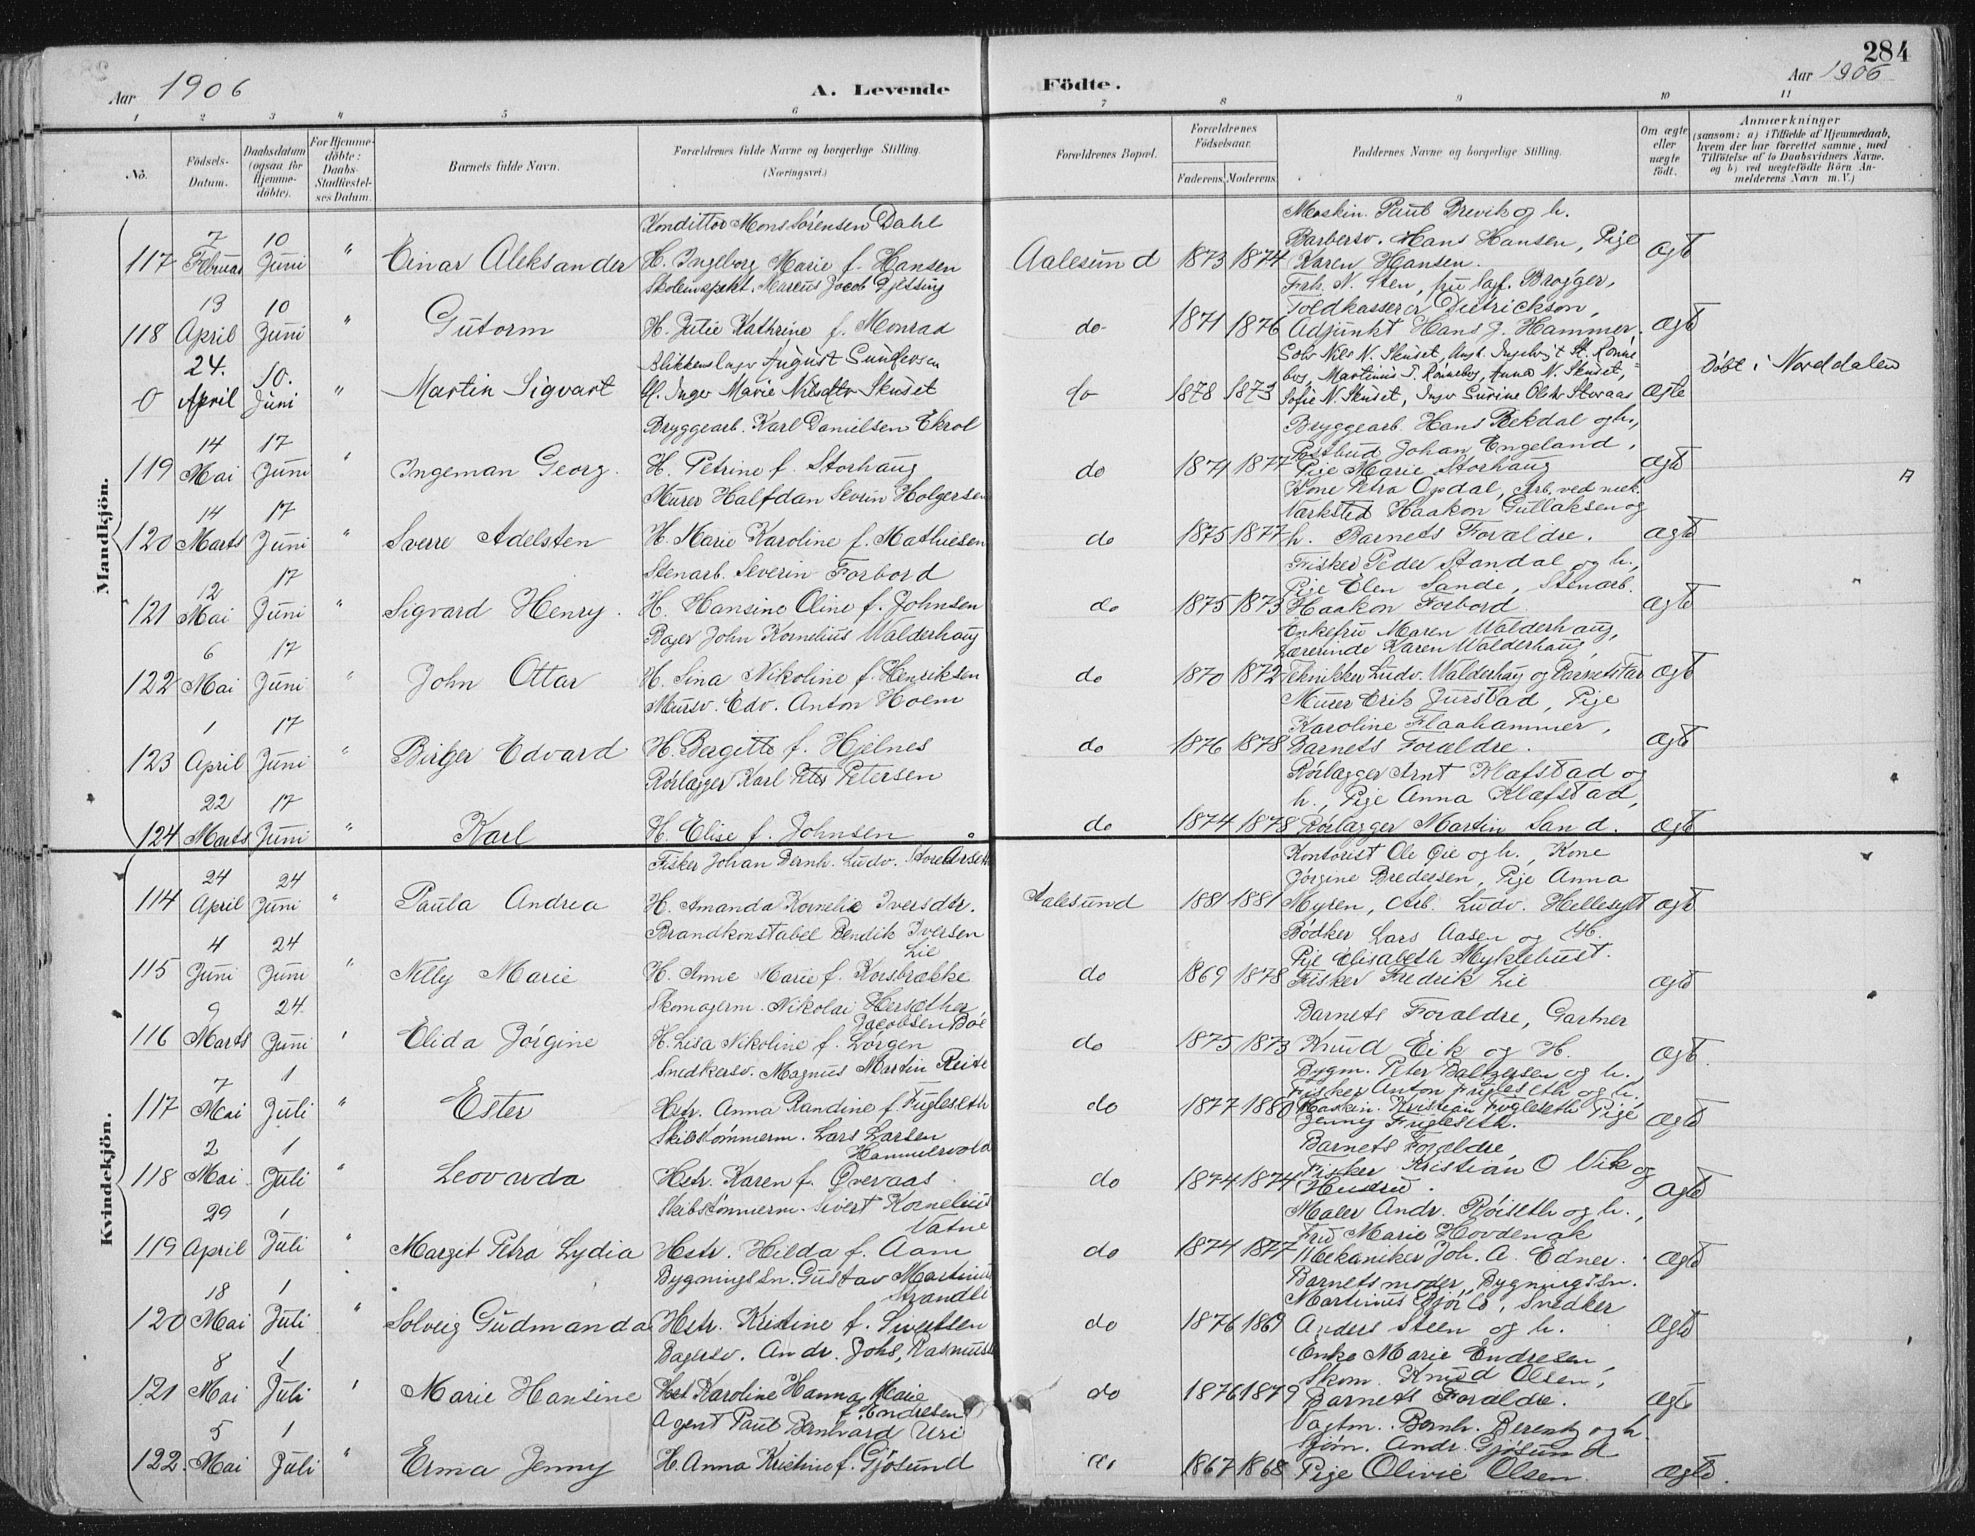 284
Aar 1906
A. Levende Födte.
Aar 1906
1 2 3 4 5 6 7 8 9 10 11
No.
Födsels-Datum.
Daabsdatum (ogsaa for Hjemme-döbte).
For Hjemme-döbte: Daabs-Stadfæstel-ses Datum.
Barnets fulde Navn.
Forældrenes fulde Navne og borgerlige Stilling. (Næringsvei.)
Forældrenes Bopæl.
Forældrenes Födselsaar.
Faderens. Moderens.
Faddernes Navne og borgerlige Stilling.
Om ægte eller uægte födt.
Anmærkninger
(saasom: a) i Tilfælde af Hjemmedaab,
hvem der har forrettet samme, med
Tilföielse af to Daabsvidners Navne,
og b) ved uegtefödte Börn An-
melderens Navn m. V.)
Mandkjön.
117 7 Februar 10 Juni " Einar Aleksander
Konditor Mons Sørensen Dahl
H. Ingeborg Marie f. Hansen
Aalesund 1873 1874
Maskin. Paul Brevik og h.
Barbersv. Hans Hansen, Pige
Karen Hansen.
Ægte
118 13 April 10 Juni " Gutorm
Skoleinspekt. Marcus Jacob Gjelsvig
H. Julie Kathrine f. Monrad
do 1871 1876
Frk. N. Sten, fru Brøgger,
Toldkasserer Dietrickson,
Adjunkt Hans J. Hammer.
Ægte
0 24. April 10. Juni " Martin Sigvart
Blikkenslager August Gundersen
H. Inger Marie Nilsdtr Skuset
do 1878 1873
Nils N. Skuset,
Martinus Rønneberg, Anna N. Skuset,
Sofie N. Skuset, Storaas
Ægte
Döbt i Norddalen
119 14 Mai 17 Juni " Ingeman Georg.
Bryggearb. Karl Danielsen Ekrol
H. Petrine f. Storhaug
do 1871 1877
Bryggearb. Hans Rekdal og h.,
Postbud Johan Engeland,
Pige Marie Storhaug
Ægte
120 14 Marts 17 Juni " Sverre Adelsten
Murer Halfdan Severin Holgersen
H. Marie Karoline f. Mathiesen
do 1875 1877
Kone Petra Opdal, Arb. ved mek.
Værksted Haakon Gullaksen og
h. Barnets Forældre.
Ægte
121 12 Mai 17 Juni " Sigvard Henry.
Stenarb. Severin Forbord
H. Hansine Oline f. Johnsen
do 1875 1873
Fisker Peder Standal og h.,
Pige Elen Sande, Stenarb.
Haakon Forbord.
Ægte
122 6 Mai 17 Juni " John Ottar
Bager John Kornelius Walderhaug
H. Sina Nikoline f. Henriksen
do 1870 1872
Enkefru Maren Walderhaug,
Lærerinde Karen Walderhaug,
Tekniker Ludv. Walderhaug og Barnets Far
Ægte
123 1 April 17 Juni " Birger Edvard
Mursv. Edv. Anton Holm
H. Bergitte f. Hjelnes
do 1876 1878
Murer Erik Jurstad, Pige
Karoline Flaahammer,
Barnets Forældre.
Ægte
124 22 Marts 17 Juni " Karl
Rørlægger Karl Peter Petersen
H. Elise f. Johnsen
do 1874 1878
Rørlægger Arnt Klafstad og
h., Pige Anna Klafstad,
Rørlægger Martin Sand.
Ægte
Kvindekjön.
114 24 April 24 Juni " Paula Andrea
Fisker Johan Bernh. Ludv.
H. Amanda Kornelie Iversdtr.
Aalesund 1881 1881
Kontorist Ole Øie og h., Kone
Jørgine Bredersen, Pige Anna
Myren, Arb. Ludv. Hellesylt
Ægte
115 4 Juni 24 Juni " Nelly Marie
Brandkonstabel Bendik Iversen
Lie
H. Anne Marie f. Korsbrække
do 1869 1878
Bødker Lars Aasen og H.
Pige Elisabeth Myklebust.
Fisker Fredrik Lie
Ægte
116 9 Marts 24. Juni " Elida Jørgine
Skomagerm. Nikolai
Jacobsen Bøe
H. Lisa Nikoline f. Lørgen
do 1875 1873
Barnets Forældre, Gartner
Knud Eik og H.
Ægte
117 7 Mai 1 Juli " Ester
Snedkersv. Magnus Martin Reite
Hstr. Anna Randine f. Fugleseth
do 1877 1880
Bygm. Peter Baltzersen og h.,
Fisker Anton Fugleseth og h.,
Maskin. Kristian Fugleseth Pige
Jenny Fugleseth.
Ægte
118 2 Mai 1 Juli " Leovarda
Skibstømmerm. Lars Larsen
Hammervold
Hstr. Karen f. Overaas
do 1874 1874
Barnets Forældre,
Fisker Kristian O. Vik og
Hustru.
Ægte
119 29 April 1 Juli " Margit Petra Lydia
Skibstømmerm. Sivert Kornelius
Vatne
Hstr. Hilda f. Aam
do 1874 1877
Maler Andr. Røiseth og h.,
Fru Marie Hovdenak
Mekaniker Joh. A. Edner.
Ægte
120 18 Mai 1 Juli " Solveig Gudmanda
Bygningssn. Gustav Martinus
Strandli
Hstr. Kristine f. Sivertsen
do 1876 1869
Barnets moder, Bygningssn.
Martinus, Snedker
Anders Steen og h.
Ægte
121 8 Mai 1 Juli " Marie Hansine
Bagersv. Andr. Johs. Rasmussen
Karoline Hanna Marie
f. Endresen
do 1876 1879
Enke Marie Endresen,
Skom. Knud Olsen,
Barnets Forældre.
Ægte
122. 5 Mai 1 Juli " Erma Jenny
Agent Paul Bernhard Uri
H. Anna Kristine f. Gjøsund
do 1867 1868
Vagtm. Bernh. Berentz og h.
Andr. Gjøsund
Pige Olivie Olsen.
Ægte.